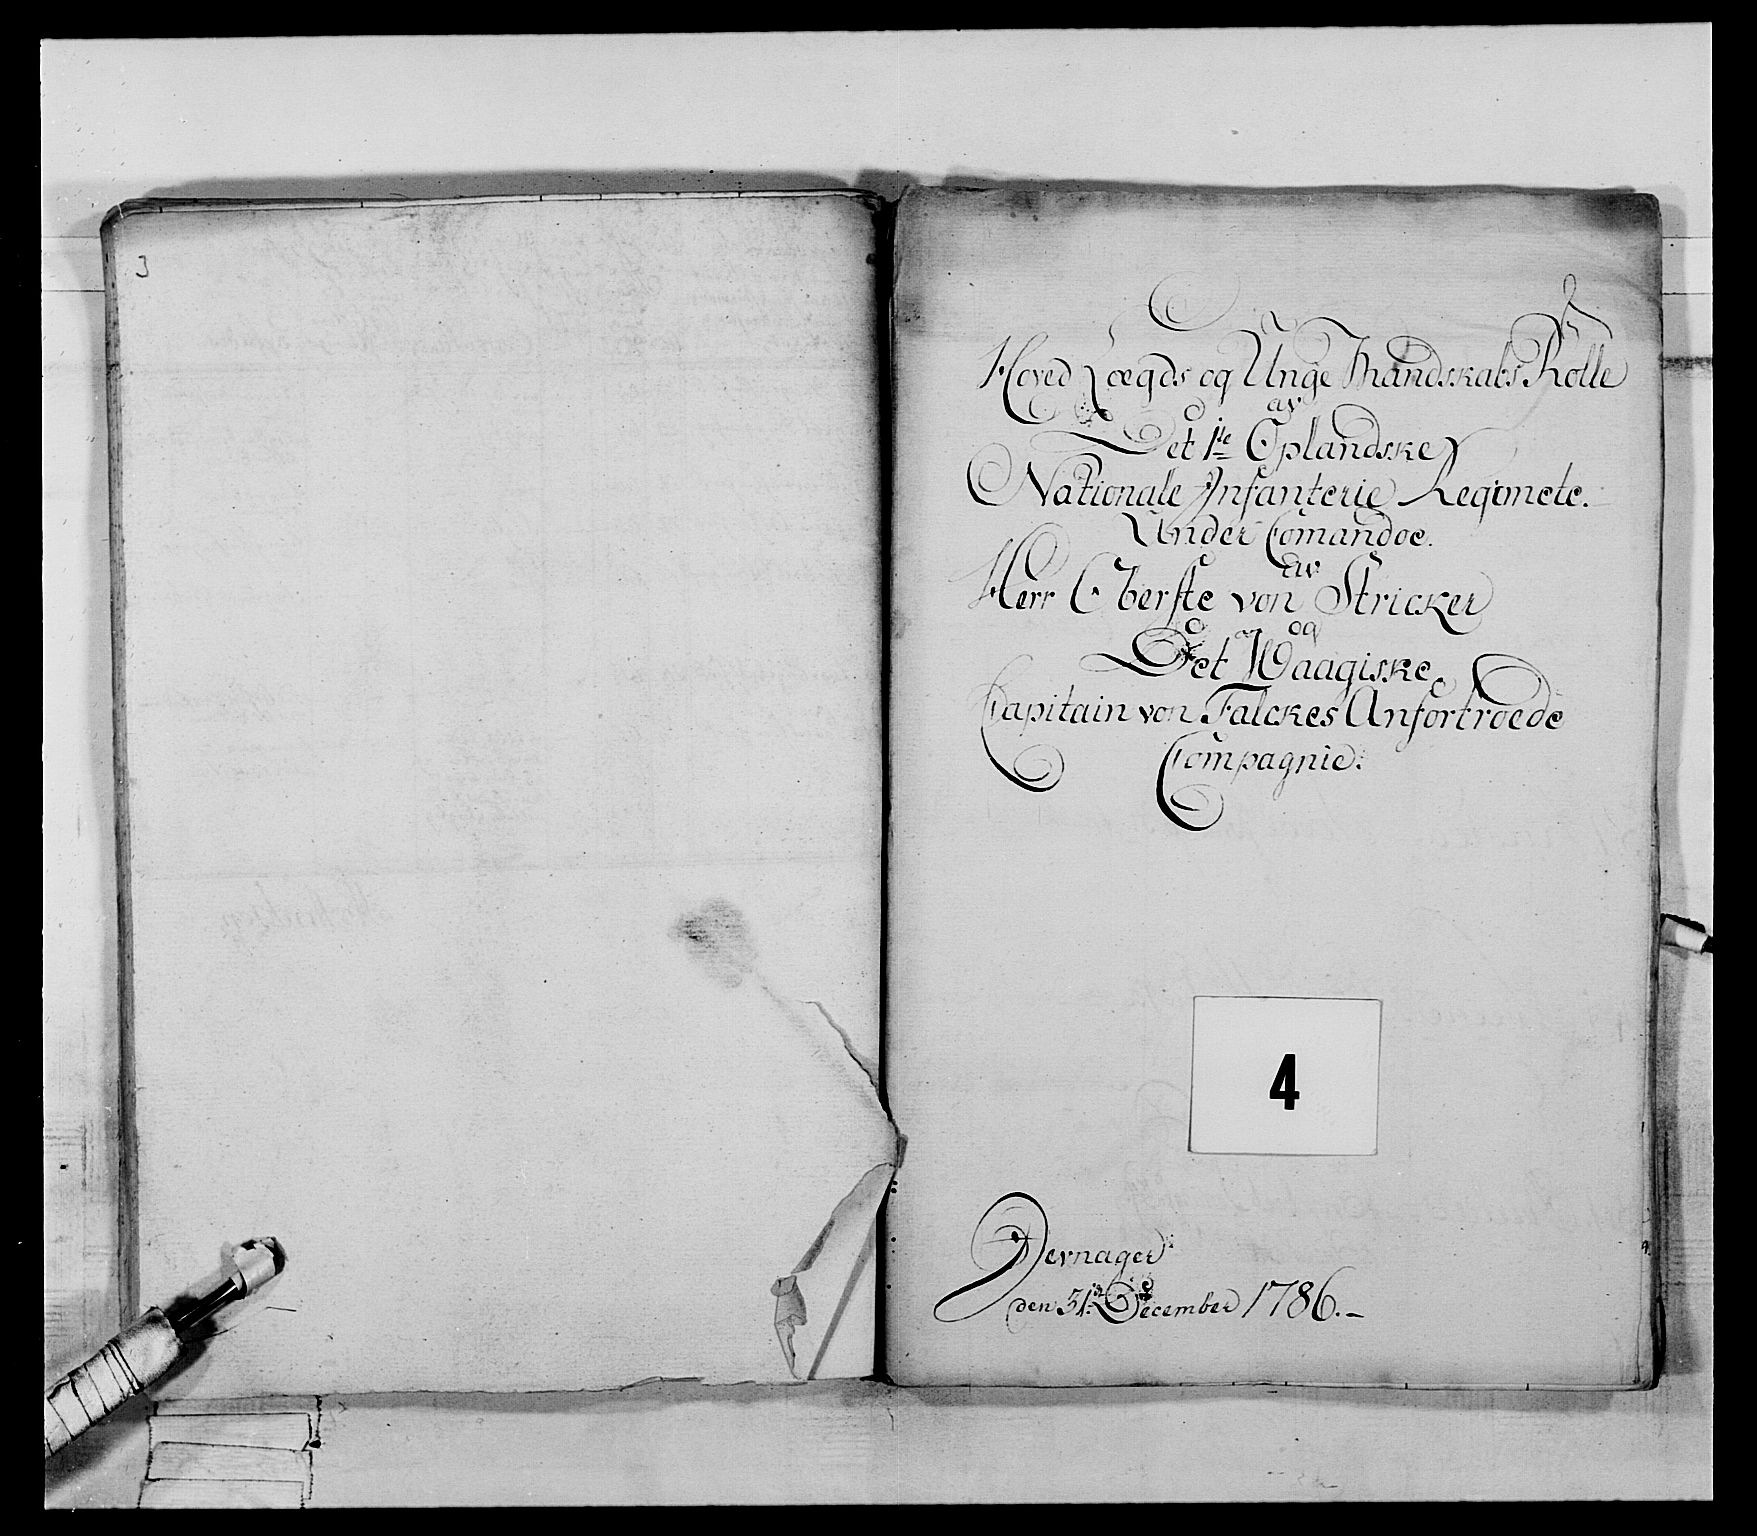 3
Hoved Lægds og Unge Mandskabs Rolle
av
Det 1te Oplandske
Nationale Infanterie Regimete.
Under Comandoe.
av
Herr Oberste von Stricker
og
Det Waagiske
Capitain von Falckes Anfortroede
Compagnie.
4
Devnager
den 31te December 1786.